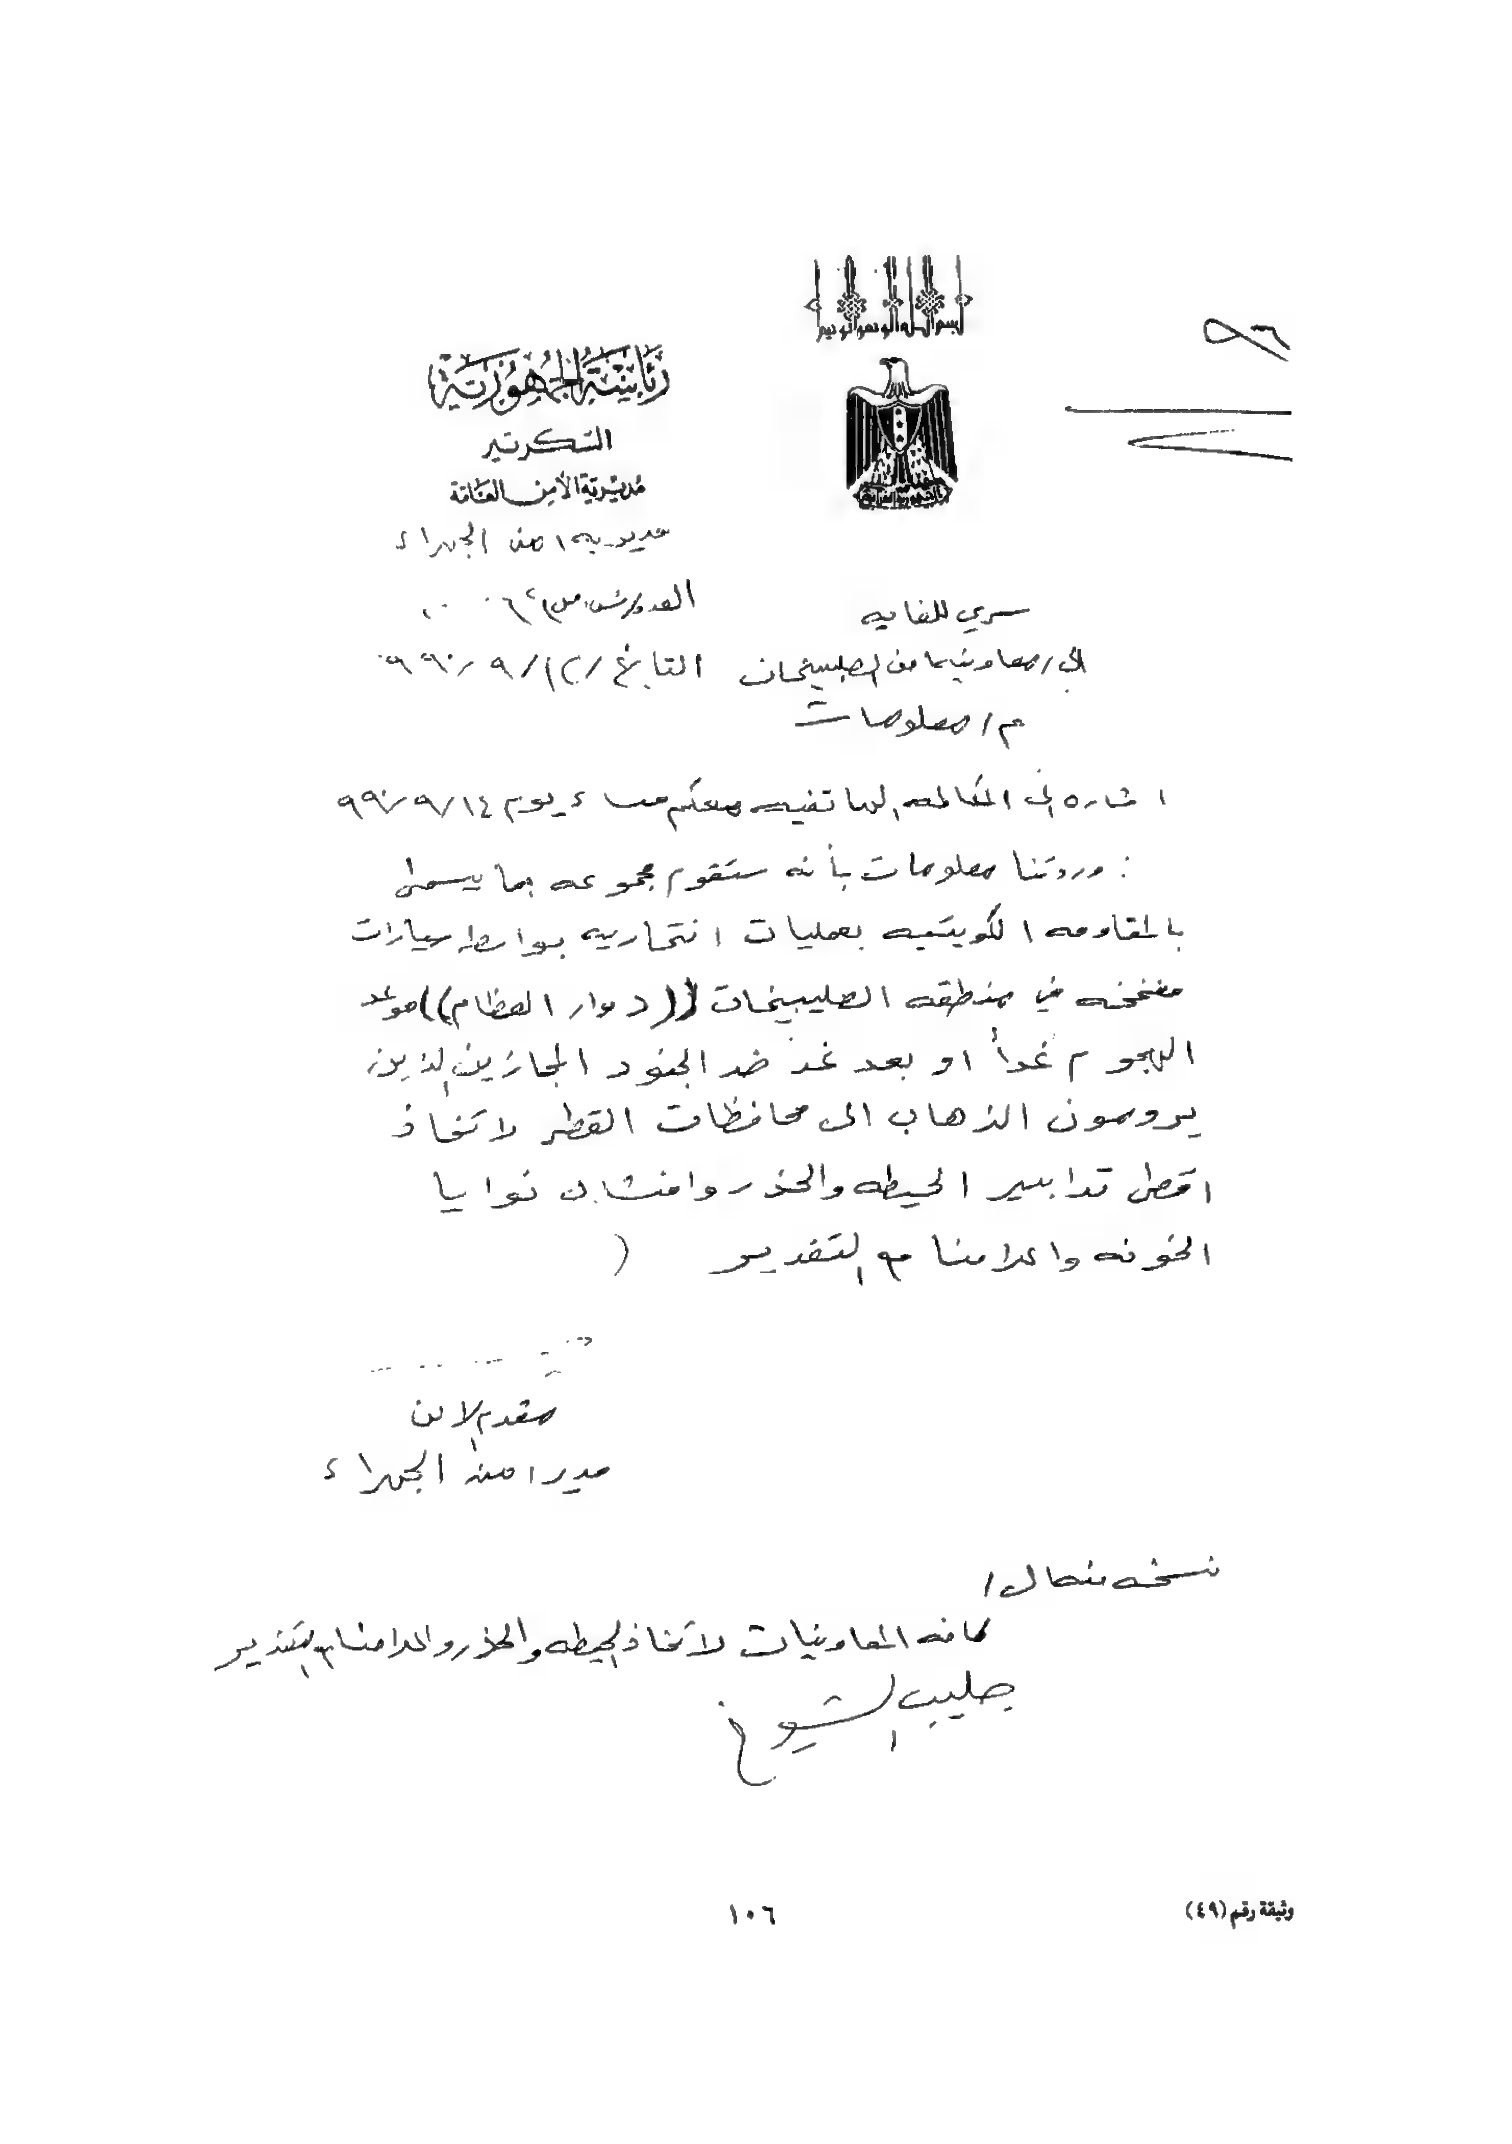 بسم الله الرحمن الرحيم
٥٦
رئاسة الجمهورية
السكرتير
مديرية الأمن العامة
الجمهورية العراقية
مديريه امن الجهراء
سري للغايه
العدد/ش.س
الى/معاونية امن الصليبيخات التاريخ/١٢/ ٩/ ٩٩٠
م/ معلومات
اشاره الى المكالمه الهاتفيه معكم مساء يوم ٩٩٠/٩/١٤
: وردتنا معلومات بأنه ستقوم مجموعه بما يسمى
بالمقاومه الكويتيه بعمليات انتحاريه بواسطه سيارات
مفخخه في منطقه الصليبيخات ((دوار العظام)) موعد
الهجوم غداً او بعد غد ضد الجنود المجازين الذين
يرومون الذهاب الى محافظات القطر لاتخاذ
اقصى تدابير الحيطه والحذر وافشال نوايا
الخونه واعلامنا مع التقدير (
مقدم الامن
مدير امن الجهراء
نسخه منه الى/
كافه المعاونيات لاتخاذ الحيطه والحذر واعلامنا مع التقدير
جليب الشيوخ
وثيقة رقم (٤٩)
١٠٦